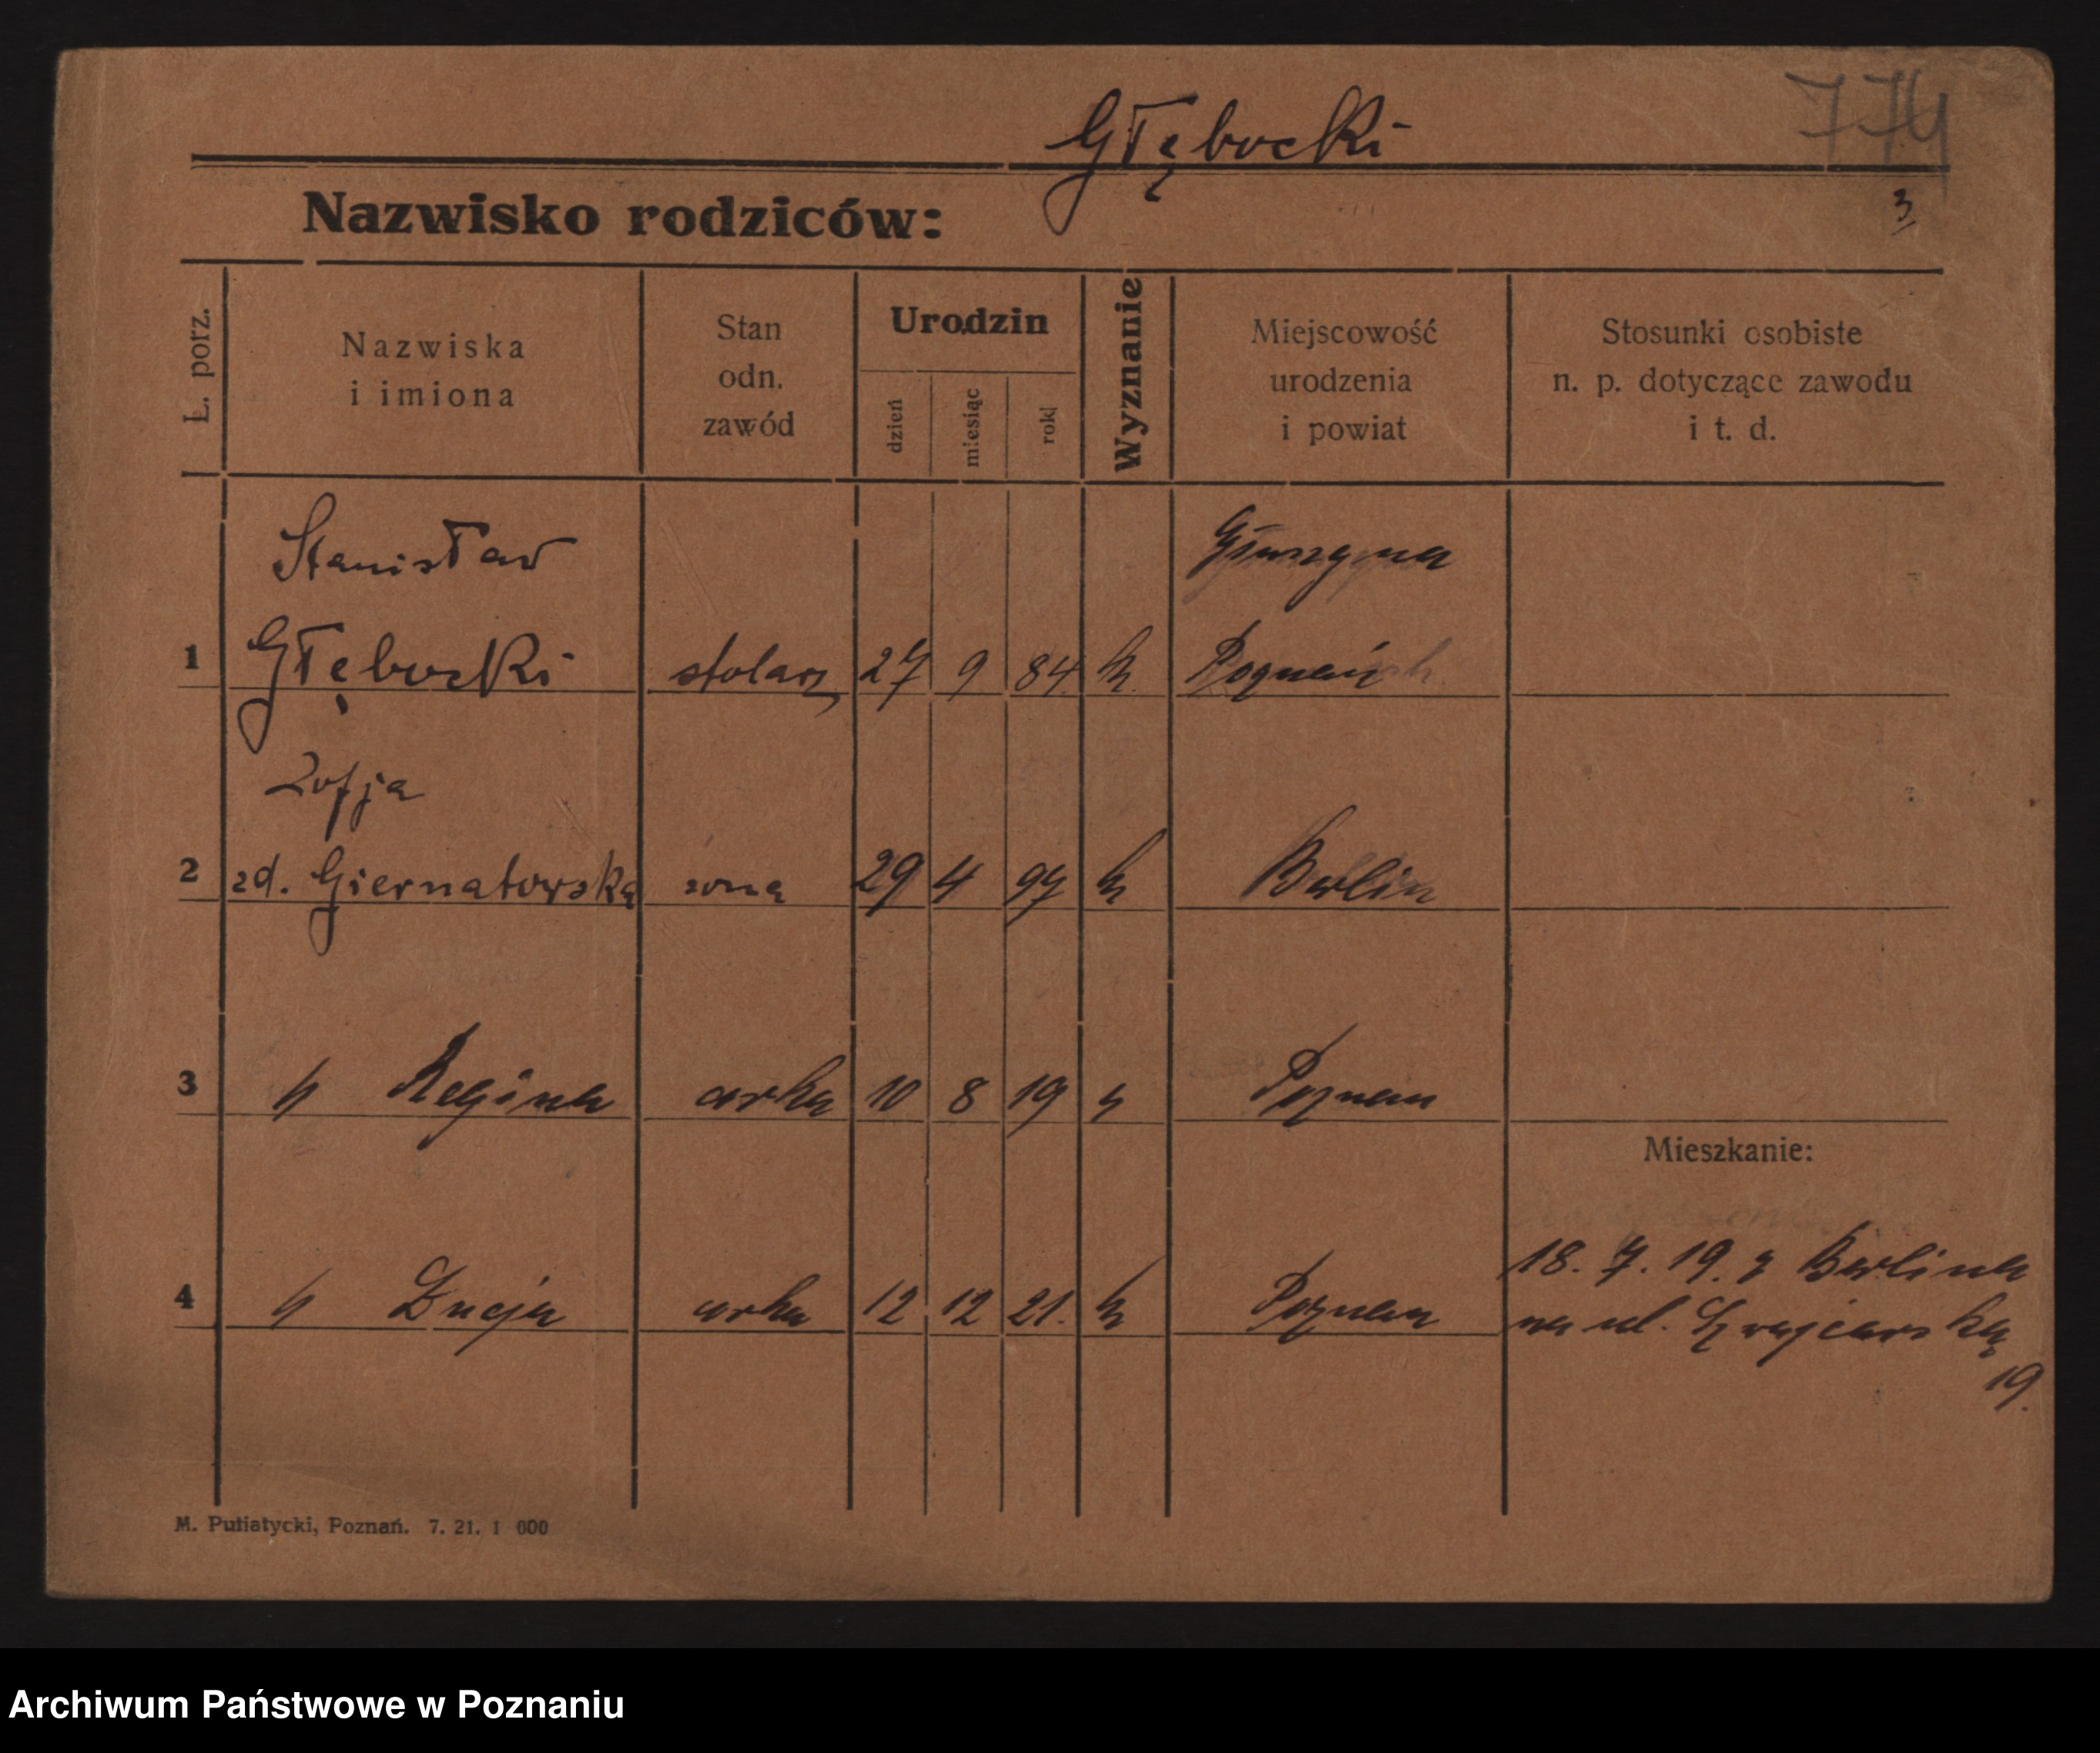 Głębocki
774
Nazwisko rodziców:
3
L. porz.
Nazwiska
i imiona
Stan
odn.
zawód
Urodzin
dzień
miesiąc
rok
Wyznanie
Miejscowość
urodzenia
i powiat
Stosunki osobiste
n. p. dotyczące zawodu
i t. d.
Stanisław
1 Głębocki stolarz 27 9 84 k.
Poznań
Zofja
2 zd. Giernatowska żona 29 4 97 k Berlin
3 " Regina córka 10 8 19 " Poznań
Mieszkanie:
18. 7. 19. z Berlina
4 " Łucja córka 12 12 21. k Poznań
na ul.
19.
M. Putiatycki, Poznań. 7. 21. 1 000
Archiwum Państwowe w Poznaniu